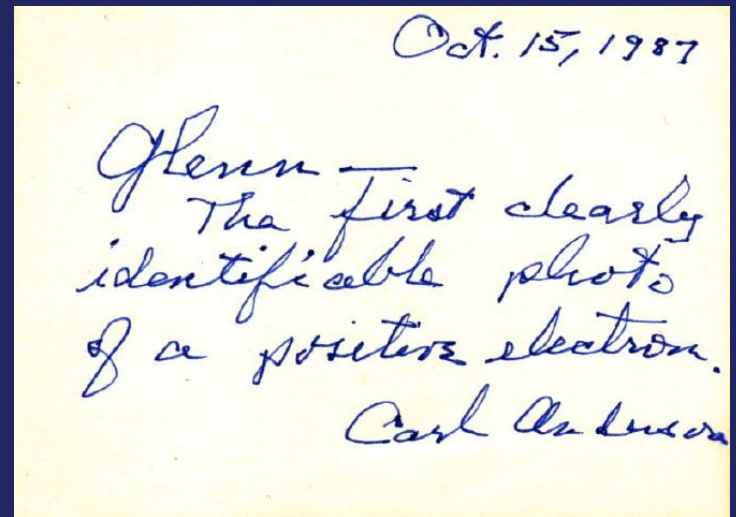 Oct. 15, 1987
Glenn —
The first clearly
identifiable photo
of a positive electron.
Carl Anderson